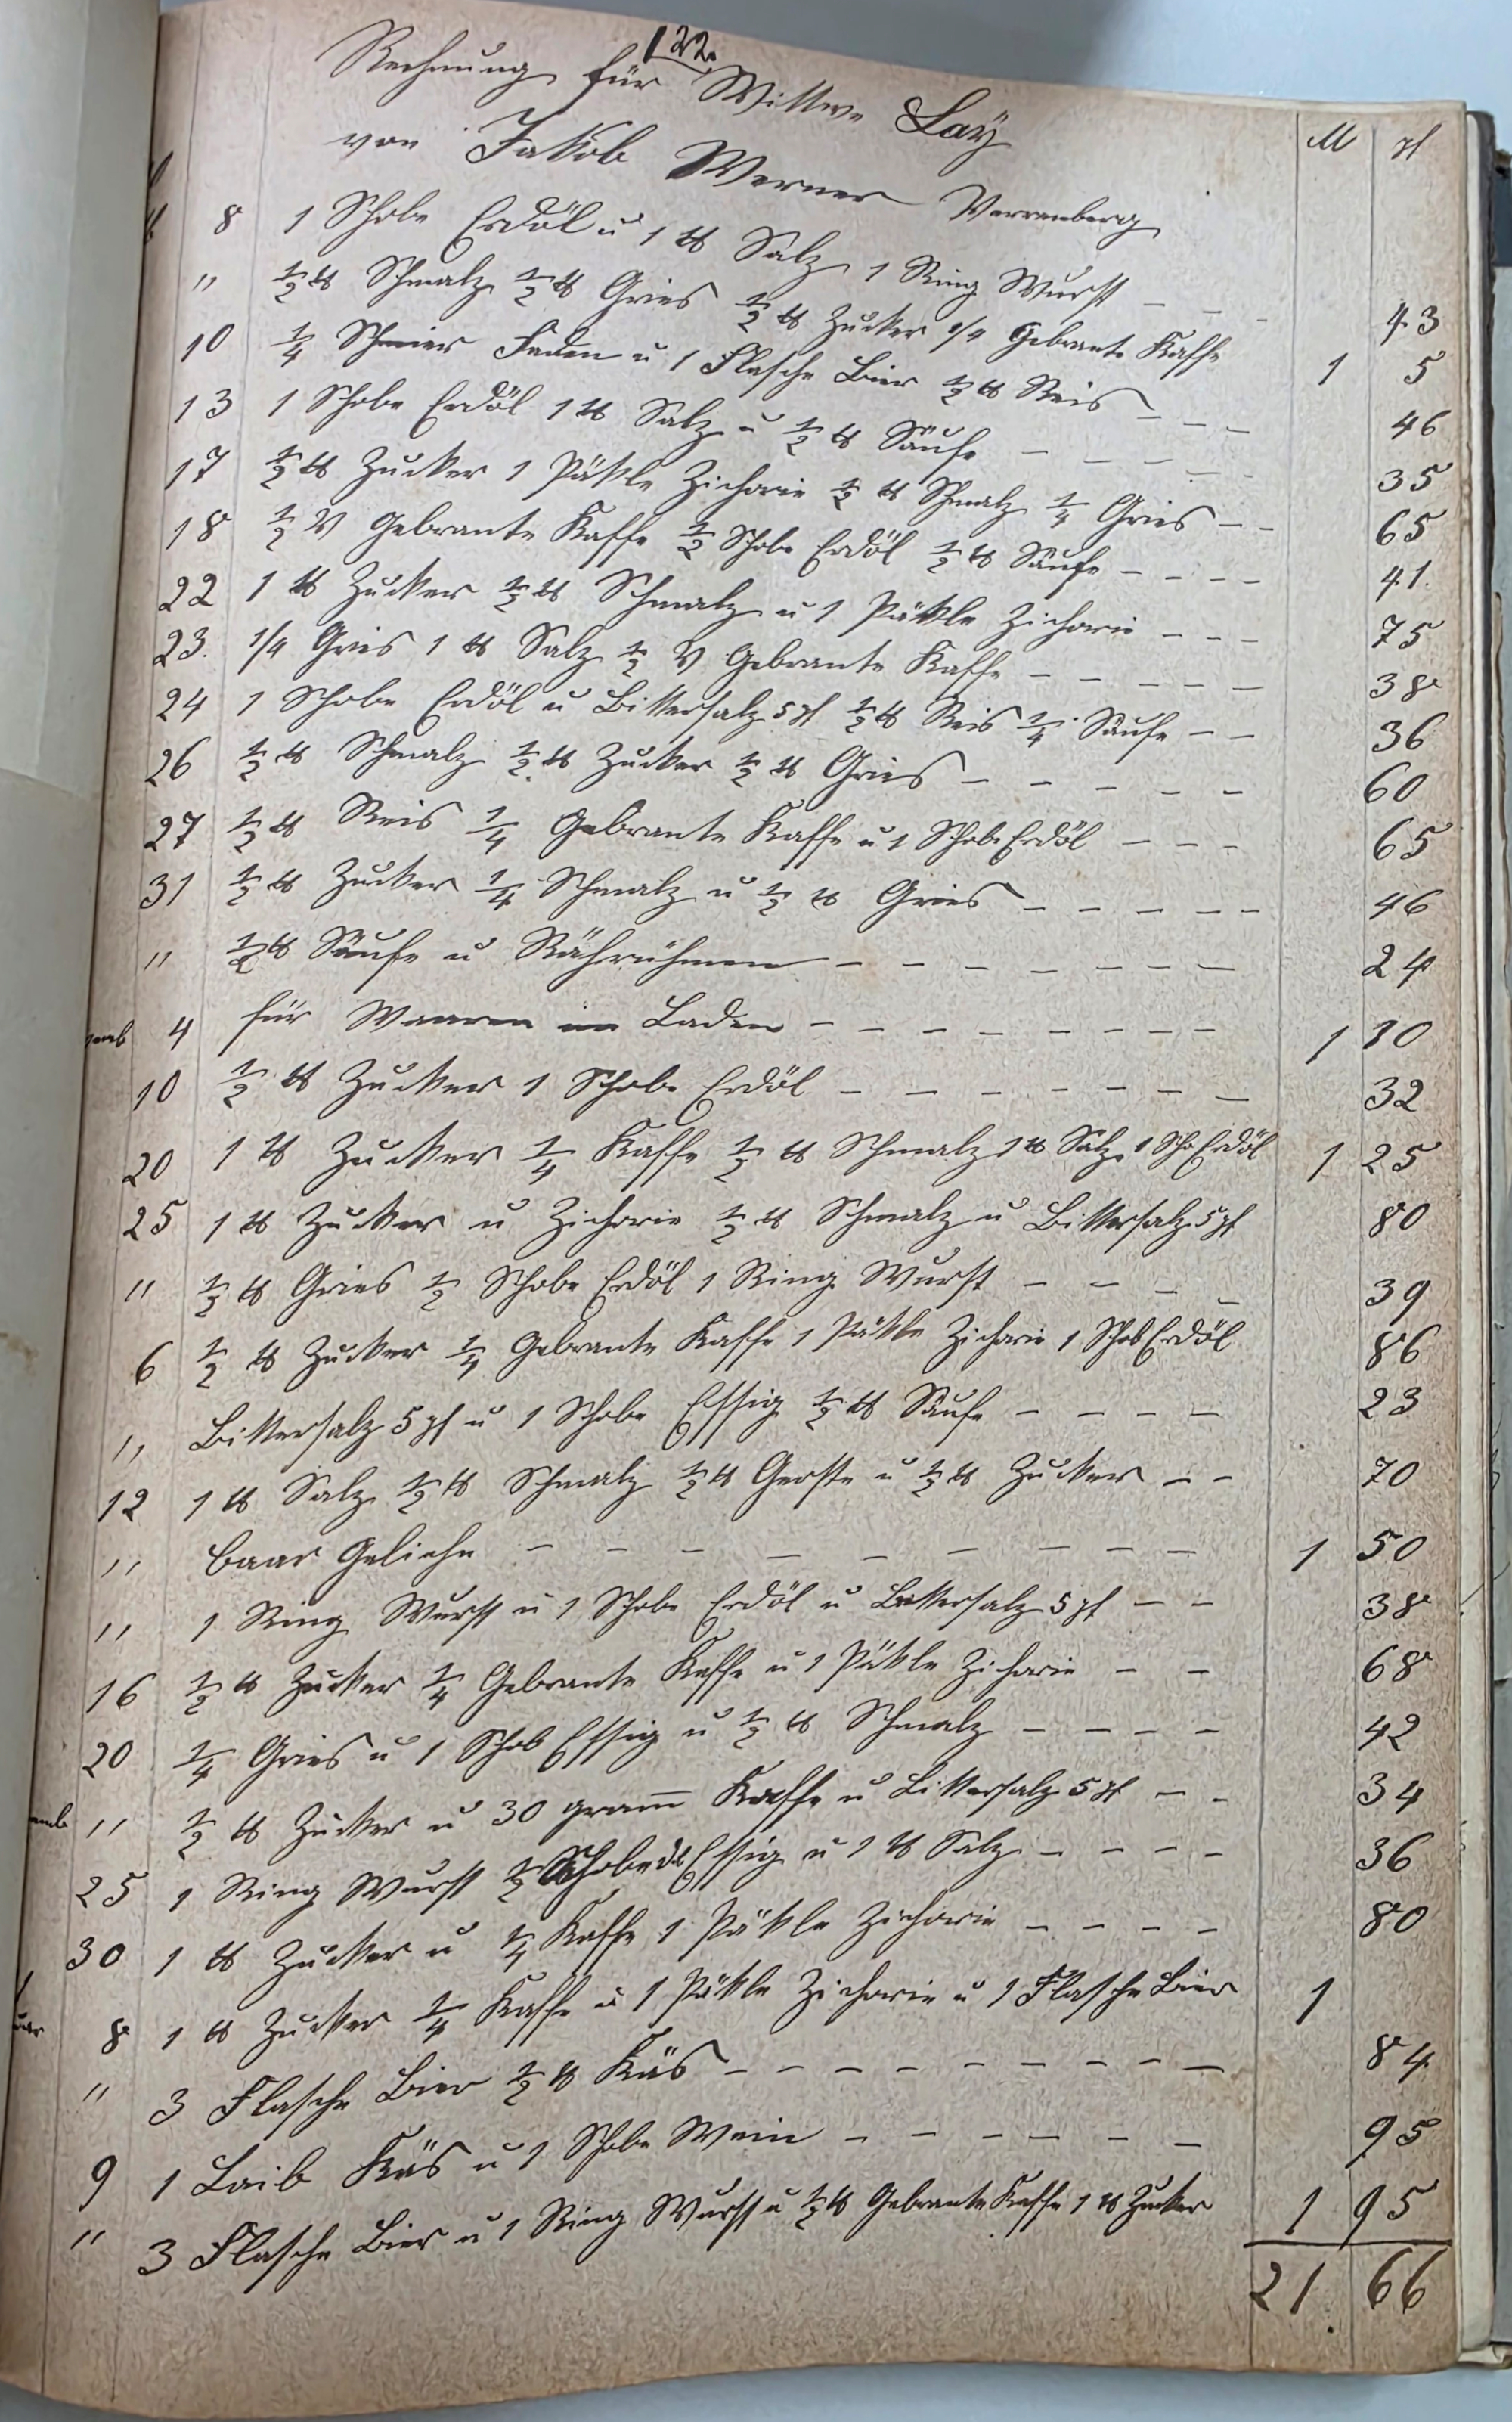 122.
Rechnung für Wittwe Lay
von Jakob Werner Verrenberg
M pf
8 1 Schobe Erdöl u 1 ℔ Salz 1 Ring Wurst - - - 43
" ½ ℔ Schmalz ½ ℔ Gries ½ ℔ Zucker 1/4 Gebrante Kaffe 1 5
10 ¼ Faden u 1 Flasche Bier ½ ℔ Reis - - - 46
13 1 Schobe Erdöl 1 ℔ Salz u ½ ℔ Säufe - - - - - 35
17 ½ ℔ Zucker 1 Päkle Zichorie ½ ℔ Schmalz ¼ Gries - - 65
18 ½ V Gebrante Kaffe ½ Schobe Erdöl ½ ℔ Säufe - - - - 41.
22 1 ℔ Zucker ½ ℔ Schmalz u 1 Päkle Zichorie - - - 75
23. 1/4 Gries 1 ℔ Salz ½ V Gebrante Kaffe - - - - - 38
24 1 Schobe Erdöl u Bittersalz 5 pf ½ ℔ Reis ¼ Säufe - - 36
26 ½ ℔ Schmalz ½ ℔ Zucker ½ ℔ Gries - - - - - 60
27 ½ ℔ Reis ¼ Gebrante Kaffe u 1 Schobe Erdöl - - - 65
31 ½ ℔ Zucker ¼ Schmalz u ½ ℔ Gries - - - - - 46
" ½ ℔ Säufe u - - - - - - - 24
4 für Waaren im Laden - - - - - - - - 1 10
10 ½ ℔ Zucker 1 Schobe Erdöl - - - - - - - - 32
20 1 ℔ Zucker ¼ Kaffe ½ ℔ Schmalz 1 ℔ Salz 1 Scho Erdöl 1 25
25 1 ℔ Zucker u Zichorie ½ ℔ Schmalz u Bittersalz 5 pf 80
" ½ ℔ Gries ½ Schobe Erdöl 1 Ring Wurst - - - - 39
6 ½ ℔ Zucker ¼ Gebrante Kaffe 1 Päkle Zichorie 1 Schob Erdöl 86
" Bittersalz 5 pf u 1 Schobe Essig ½ ℔ Säufe - - - - 23
12 1 ℔ Salz ½ ℔ Schmalz ½ ℔ Gerste u ½ ℔ Zucker - - 70
" baar Geliehe - - - - - - - - - 1 50
" 1 Ring Wurst u 1 Schobe Erdöl u Bittersalz 5 pf - - 38
16 ½ ℔ Zucker ¼ Gebrante Kaffe u 1 Päkle Zichorie - - 68
20 ¼ Gries u 1 Schob Essig u ½ ℔ Schmalz - - - - 42
" ½ ℔ Zucker u 30 gram̅ Kaffe u Bittersalz 5 pf - - 34
25 1 Ring Wurst ½ Schobe Essig u 1 ℔ Salz - - - - 36
30 1 ℔ Zucker u ¼ Kaffe 1 Päkle Zichorie - - - - 80
8 1 ℔ Zucker ¼ Kaffe u 1 Päkle Zichorie u 1 Flasche Bier 1
" 3 Flasche Bier ½ ℔ Käs - - - - - - - - - 84
9 1 Laib Käs u 1 Schobe Wein - - - - - - 95
" 3 Flasche Bier u 1 Ring Wurst u ½ ℔ Gebrante Kaffe 1 ℔ Zucker 1 95
21 66